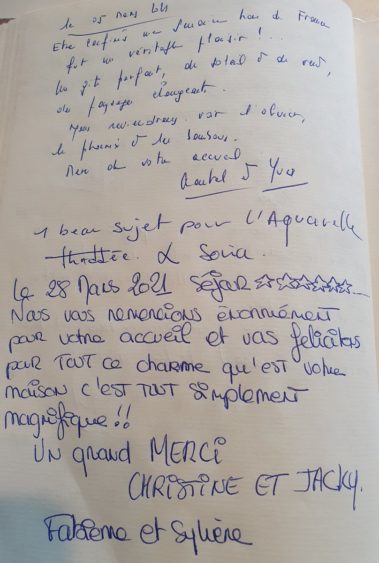 le 05 mars
Etre confinés une semaine hors de France
fut un véritable plaisir ! ...
Un gîte parfait, du soleil & du vent,
des paysages changeants.
Nous reviendrons voir
le phare & les
Merci de votre accueil
& Yves
1 beau sujet pour l'Aquarelle
& Sonia.
Le 28 Mars 2021 Séjour ☆☆☆☆☆☆...
Nous vous remercions énormément
pour votre accueil et vous félicitons
pour TOUT ce charme qu'est votre
maison c'est TOUT simplement
magnifique !!
UN grand MERCI
CHRISTINE ET JACKY.
Fabienne et Sylvère